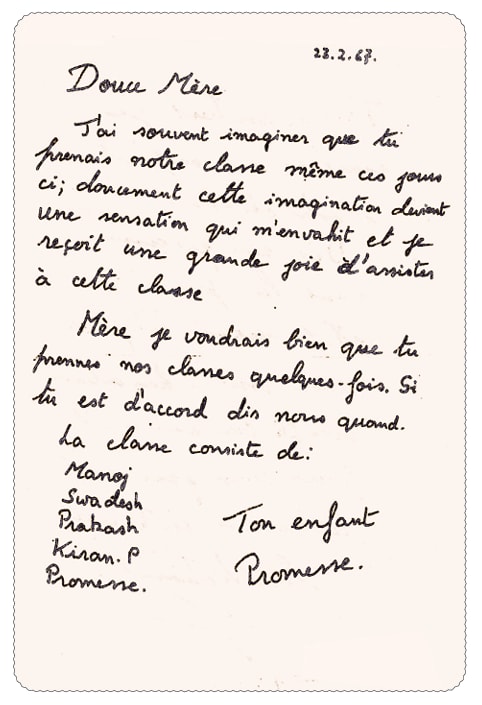 23.2.67.
Douce Mère
J'ai souvent imaginer que tu
prenais notre classe même ces jours
ci; doucement cette imagination devient
une sensation qui m'envahit et je
reçoit une grande joie d'assister
à cette classe
Mère je voudrais bien que tu
prennes nos classes quelques-fois. Si
tu est d'accord dis nous quand.
La classe consiste de:
Manoj
Swadesh
Prakash
Kiran. P
Promesse.
Ton enfant
Promesse.